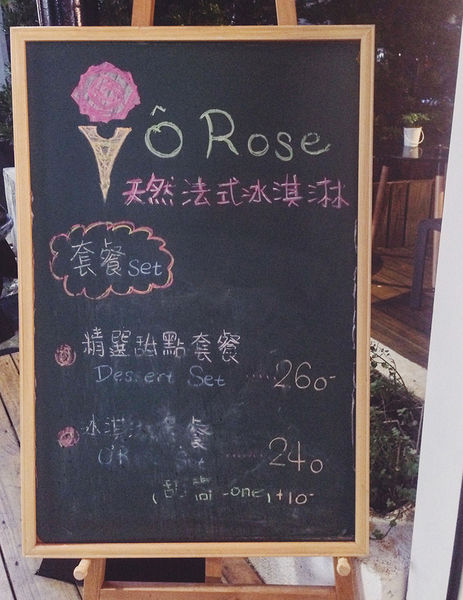 Ô Rose
天然法式冰淇淋
套餐 Set
精選甜點套餐
Dessert Set ..... 260-
冰淇淋套餐
Ô'R Set ...... 240
-one) +10-